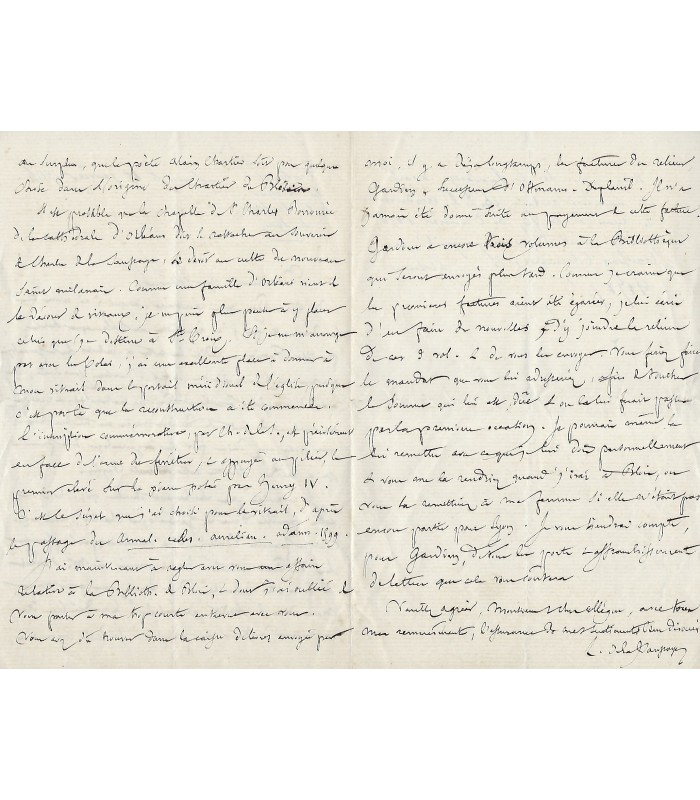 au surplus, que le poète Alain Chartier soit pour quelque
chose dans l'origine du
Il est probable que la chapelle de St Charles Borromée
de la cathédrale d'Orléans doit se rattacher au souvenir
de Charles de la Saussaye, dévot au culte du nouveau
Saint milanais. Comme une famille d'Orléans vient de
le décorer de vitraux, je ne puis plus penser à y placer
celui que j'ai destiné à Ste Croix. Si je ne m'arrange
pas avec le Colas, j'ai une excellente place à donner à
mon vitrail dans le portail méridional de l'église, puisque
c'est par là que la reconstruction a été commencée.
L'inscription commémorative, par Ch. de la S., est précisément
en face de l'orme de fenêtre, et appuyé au pilier, le
premier élevé sur la pierre posée par Henry IV.
C'est le sujet que j'ai choisi pour le vitrail, d'après
le passage des Annal. eccles. aurelian.
J'ai maintenant à régler avec vous une affaire
relative à la Biblioth. de Blois, et dont j'ai oublié de
vous parler à ma trop courte entrevue avec vous.
Vous avez dû trouver dans la caisse de livres envoyée par
moi, il y a déjà longtemps, la facture du relieur
Gaudien, successeur d'Ottmann-Duplanil. Il n'a
jamais été donné suite au payement de cette facture
Gaudien a encore trois volumes à la Bibliothèque
qui seront envoyés plus tard. Comme je crains que
les premières factures aient été égarées, je lui écris
d'en faire de nouvelles, d'y joindre la reliure
de ces 3 vol. et de vous les envoyer. Vous ferez faire
le mandat que vous lui adresserez, afin de toucher
la somme qui lui est dûe et on la lui ferait passer
par la première occasion. Je pourrais même la
lui remettre avec ce que je lui dois personnellement
et vous me la rendriez quand j'irai à Blois, ou
vous la remettriez à ma femme si elle n'était pas
encore partie pour Lyon. Je vous tiendrai compte,
pour Gaudien, de tous les ports et affranchissements
de lettres que cela vous coûtera
Veuillez agréer, Monsieur et cher collègue, avec tous
mes remerciements, l'assurance de mes sentiments bien dévoués
L. de la Saussaye